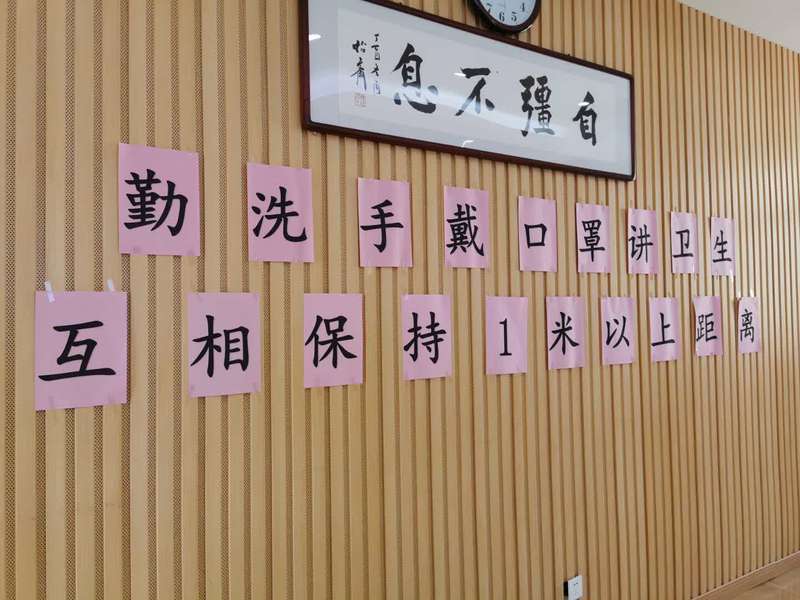 自彊不息
丁酉
勤洗手戴口罩讲卫生
互相保持1米以上距离